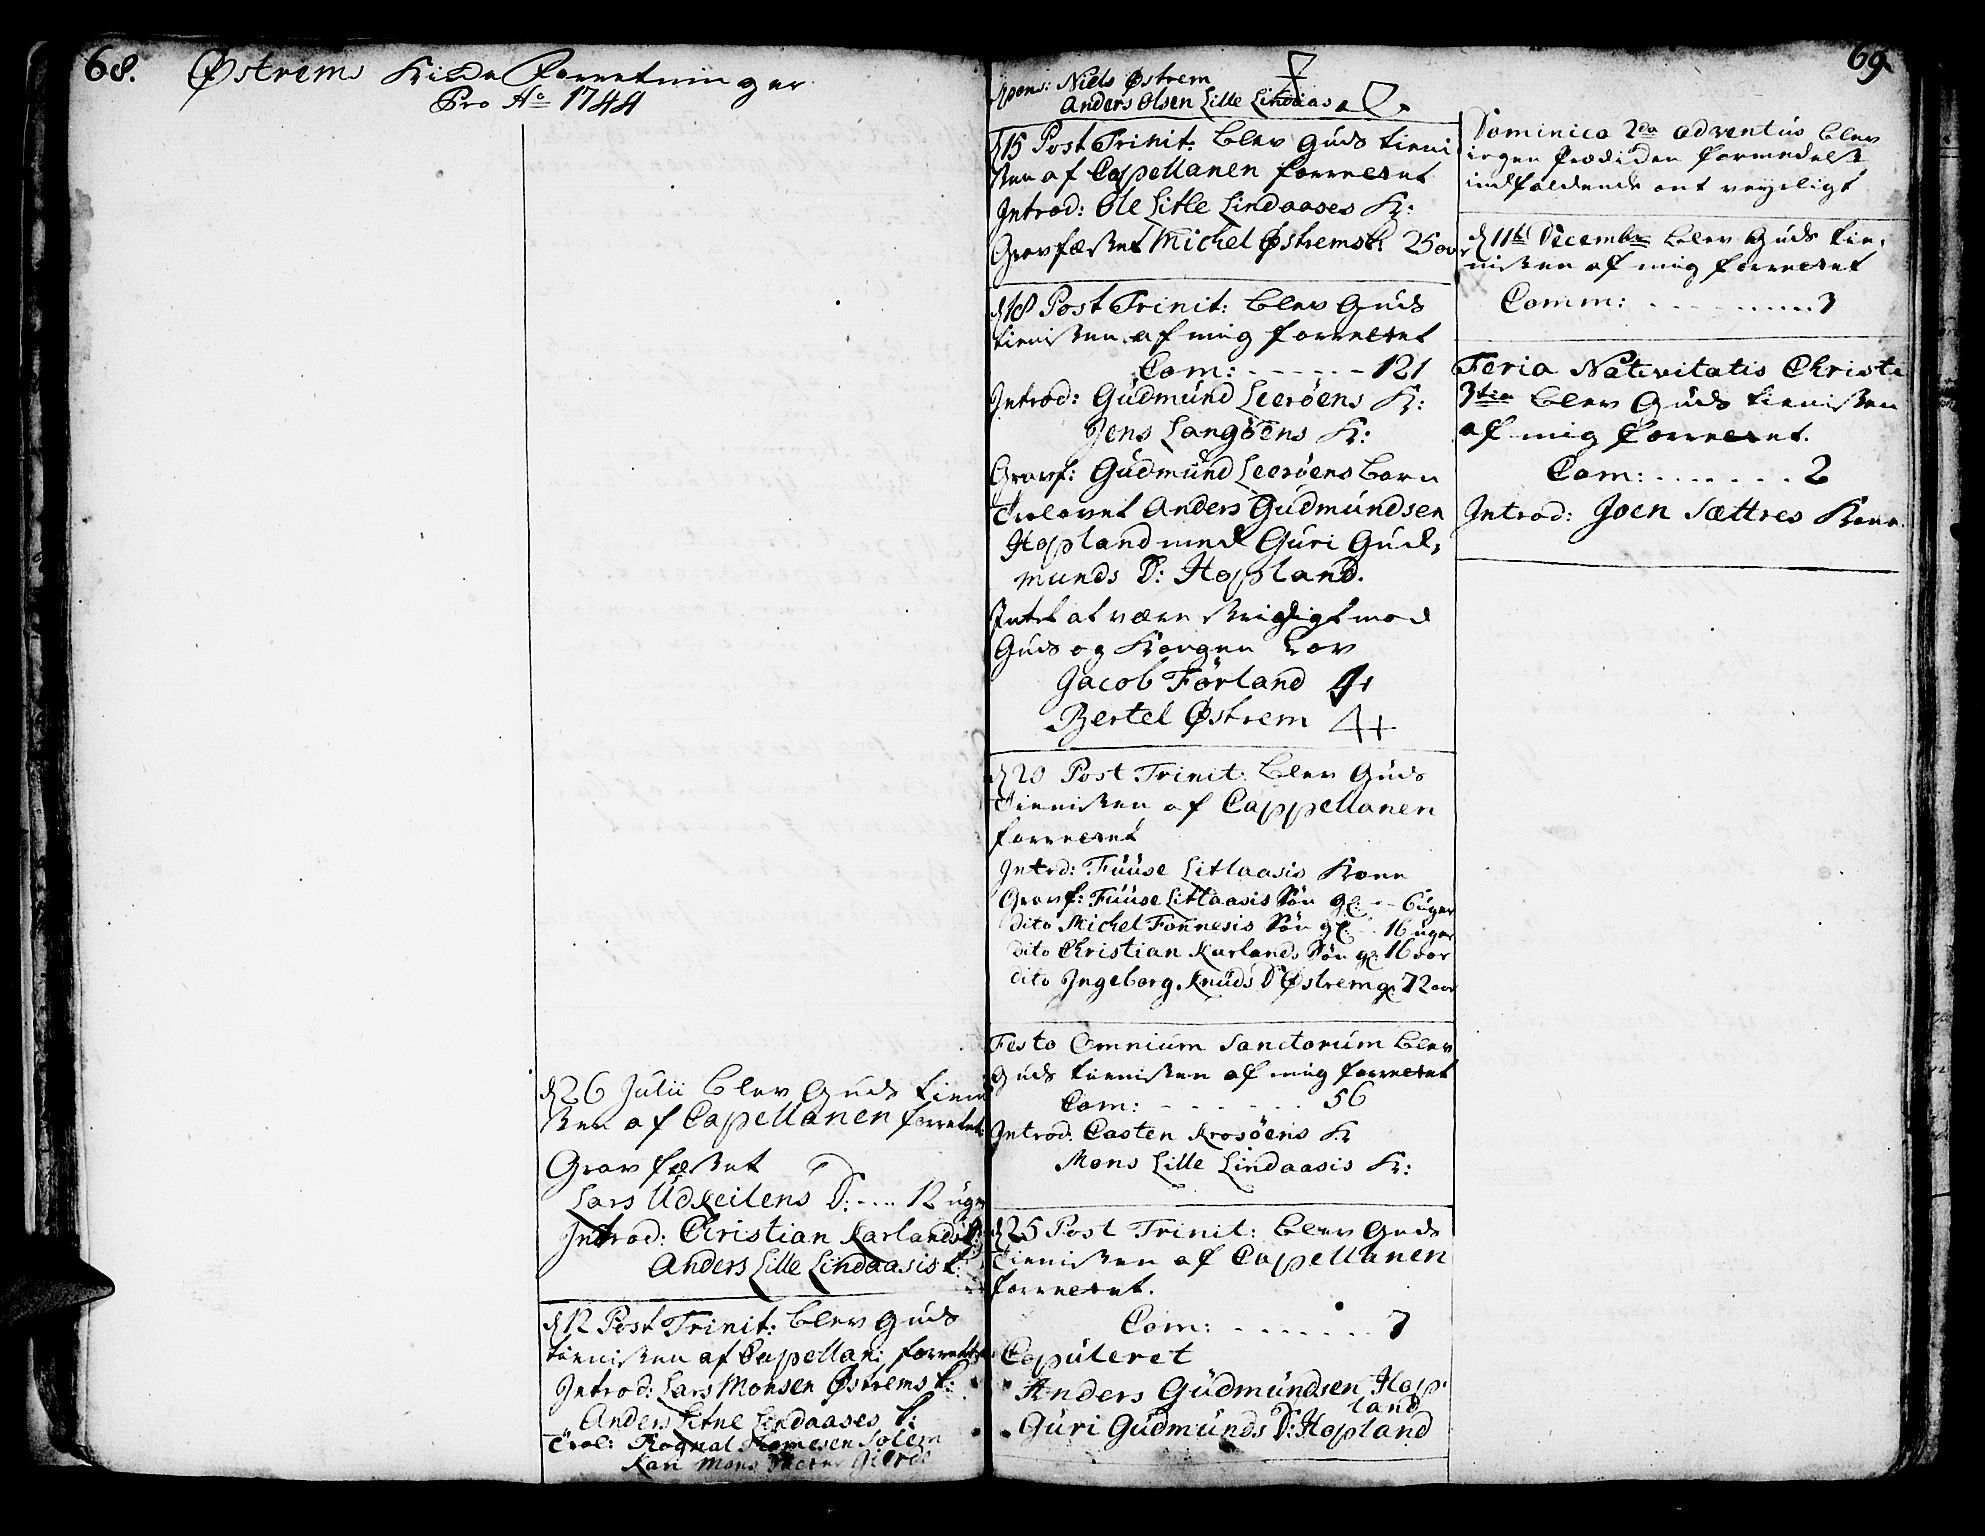 68.
Østrems Kirke Forretninger
Pro Aō 1744
d 26 Julii blev Guds tieni
sten af Capellanen forrettet
Grav fæstet
Lars Udkeilens D: .... 12 uger
Introd: Christian Karlands K:
Anders Lille Lindaasis K:
d 12 Post Trinit: blev Guds
tienisten af Capellan: forrettet
Introd: Lars Monsen Østrems K:
Anders Litne Lindaases K:
Trol: Rognal Solem
Kari Mons
69
Spons: Niels Østrem
Anders Olsen Lille Lindaas
d 15 Post Trinit: blev Guds tieni
sten af Capellanen forrettet
Introd: Ole Litle Lindaases K:
Gravfæstet Michel Østrems 25 aar
d 18 Post Trinit: blev Guds
tienisten af mig forrettet
Com: - - - - - - 121
Introd: Gudmund Leerøens K:
Jens Langøens K:
Gravf: Gudmund Leerøens barn
Trolovet Anders Gudmundsen
Hopland med Guri Gud,
munds D: Hopland.
Intet at være stridigt mod
Guds og Kongen Lov
Jacob Førland
Bertel Østrem
d 20 Post Trinit: blev Guds
Tienisten af Cappellanen
forrettet
Intrd: Fuuse Litlaasis Kone
Gravf: Fuuse Litlaasis Søn gl: - - 6 uger
dito Michel Fonnesis Søn gl: - 16 uger
dito Christian Karlands Søn gl: 16 aar
dito Ingeborg Knuds D Østrem gl 72 aar
Festo Omnium Sanctorum blev
Guds tienisten af mig forrettet
Com: - - - - - - 56
Introd: Casten Krosøens K
Mons Lille Lindaasis K:
d 25 Post Trinit: blev Guds
Tienisten af Capellanen
forrettet.
Com: - - - - - - - 7
Copuleret
Anders Gudmundsen Hop
land
Guri Gudmunds D: Hopland
Dominica 2da Adventus blev
ingen Prædiken formedelst
indfaldende ont veyrligt
d 11te Decembr blev Guds tie,
nisten af mig forrettet
Comm: - - - - - - - - - 3
Feria Nativitatis Christi
3tia blev Guds tienisten
af mig forrettet.
Com: . . . . . . . 2
Introd: Joen Sættres Kone